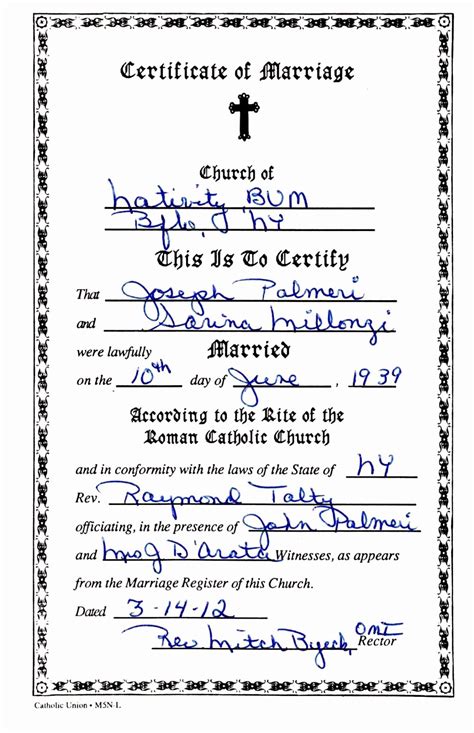 Certificate of Marriage
Church of
Nativity BVM
Bflo, NY
This Is To Certify
That Joseph Palmeri
and Sarina Millonzi
were lawfully Married
on the 10th day of June, 1939
According to the Rite of the
Roman Catholic Church
and in conformity with the laws of the State of NY
Rev. Raymond Talty
officiating, in the presence of John Palmeri
and D'Arata Witnesses, as appears
from the Marriage Register of this Church.
Dated 3-14-12
Rev. Mitch OMI
Rector
Catholic Union • M5N-L